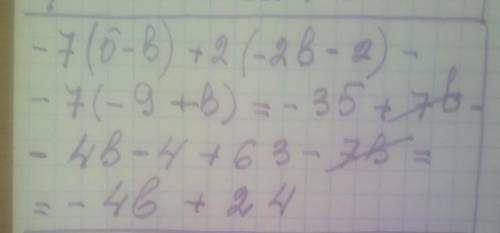 -7(5-b)+2(-2b-2)-
-7(-9+b)=-35+7b-
-4b-4+63-7b=
=-4b+24